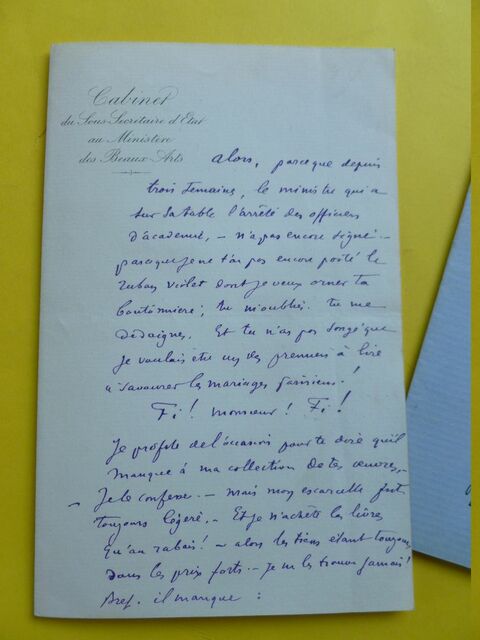 Cabinet
du Sous-Secrétaire d'Etat
au Ministère
des Beaux-Arts
alors, parce que depuis
trois semaines, le ministre qui a
sur sa table l'arrêté des officiers
d'académie, - n'a pas encore signé -
parce que je ne t'ai pas encore porté le
ruban violet dont je veux orner ta
boutonnière ; tu m'oublies. tu me
dédaignes. Et tu n'as pas songé que
je voulais être un des premiers à lire
"savourer les mariages parisiens !
Fi ! monsieur ! Fi !
Je profite de l'occasion pour te dire qu'il
manque à ma collection de tes œuvres, -
Je le confesse - mais mon escarcelle fut
toujours légère, - Et je n'achète les livres
qu'au rabais ! - alors les tiens étant toujours
dans les prix forts - je ne les trouve jamais !
Bref. il manque :